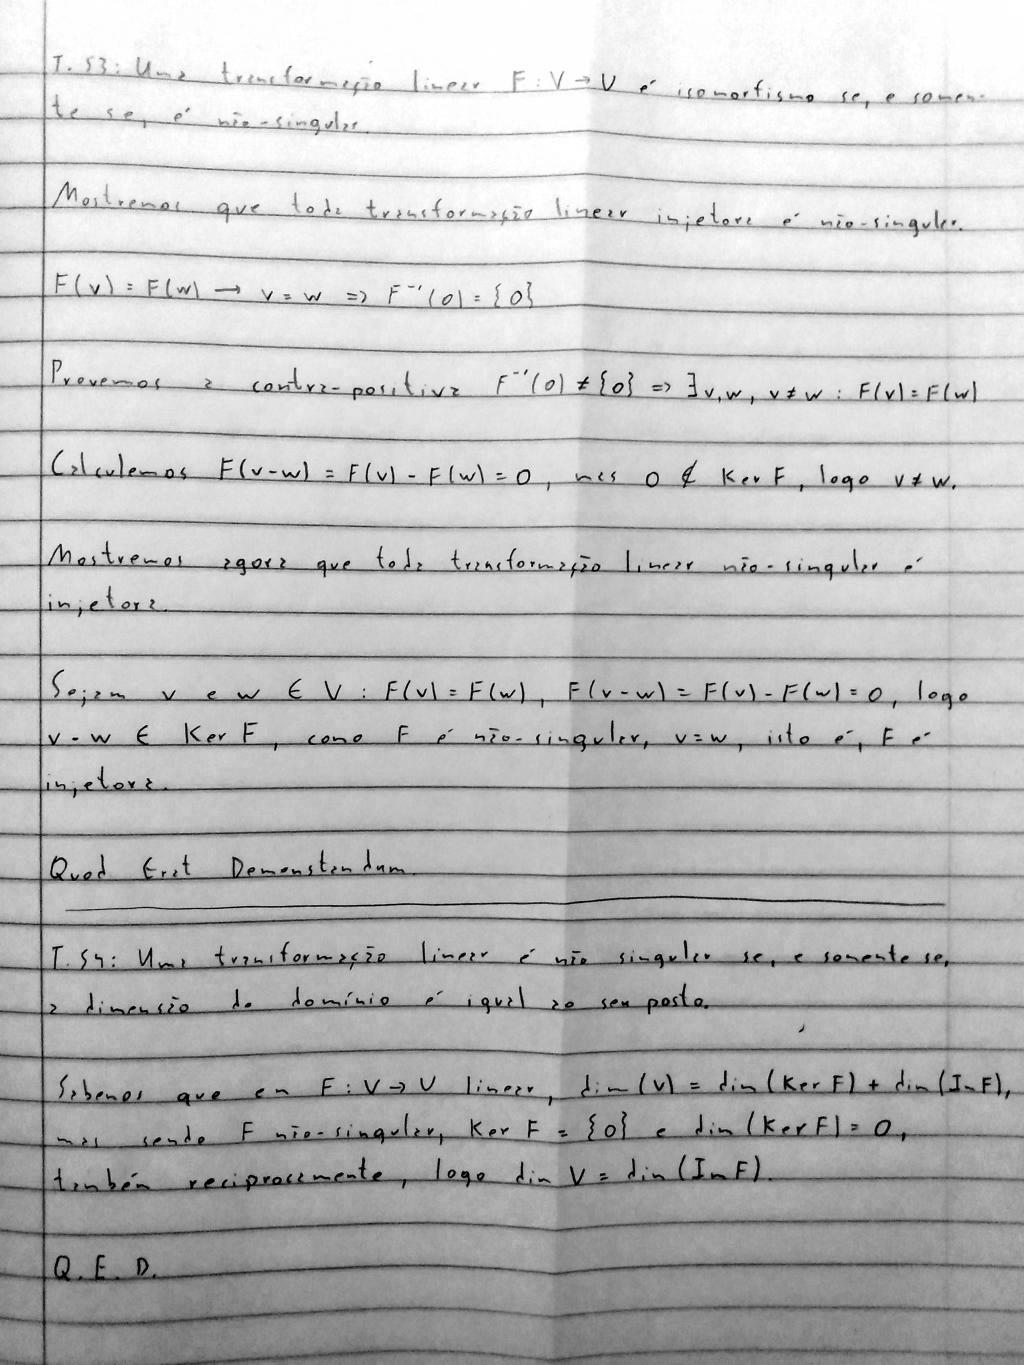 T. 53: Uma transformação linear F: V → U é isomorfismo se, e somen-
te se, é não-singular.
Mostremos que toda transformação linear injetora é não-singular.
F(v) = F(w) → v = w => F⁻¹(0) = {0}
Provemos a contra-positiva F⁻¹(0) ≠ {0} => ∃v,w, v ≠ w : F(v) = F(w)
Calculemos F(v-w) = F(v) - F(w) = 0, mas 0 ∉ Ker F, logo v ≠ w.
Mostremos agora que toda transformação linear não-singular é
injetora.
Sejam v e w ∈ V : F(v) = F(w), F(v-w) = F(v) - F(w) = 0, logo
v - w ∈ Ker F, como F é não-singular, v = w, isto é, F é
injetora.
Quod Erat Demonstandum.
T. 54: Uma transformação linear é não singular se, e somente se,
a dimensão do domínio é igual ao seu posto.
Sabemos que em F: V → U linear, dim(V) = dim(Ker F) + dim(Im F),
mas sendo F não-singular, Ker F = {0} e dim(Ker F) = 0,
também reciprocamente, logo dim V = dim(Im F).
Q. E. D.